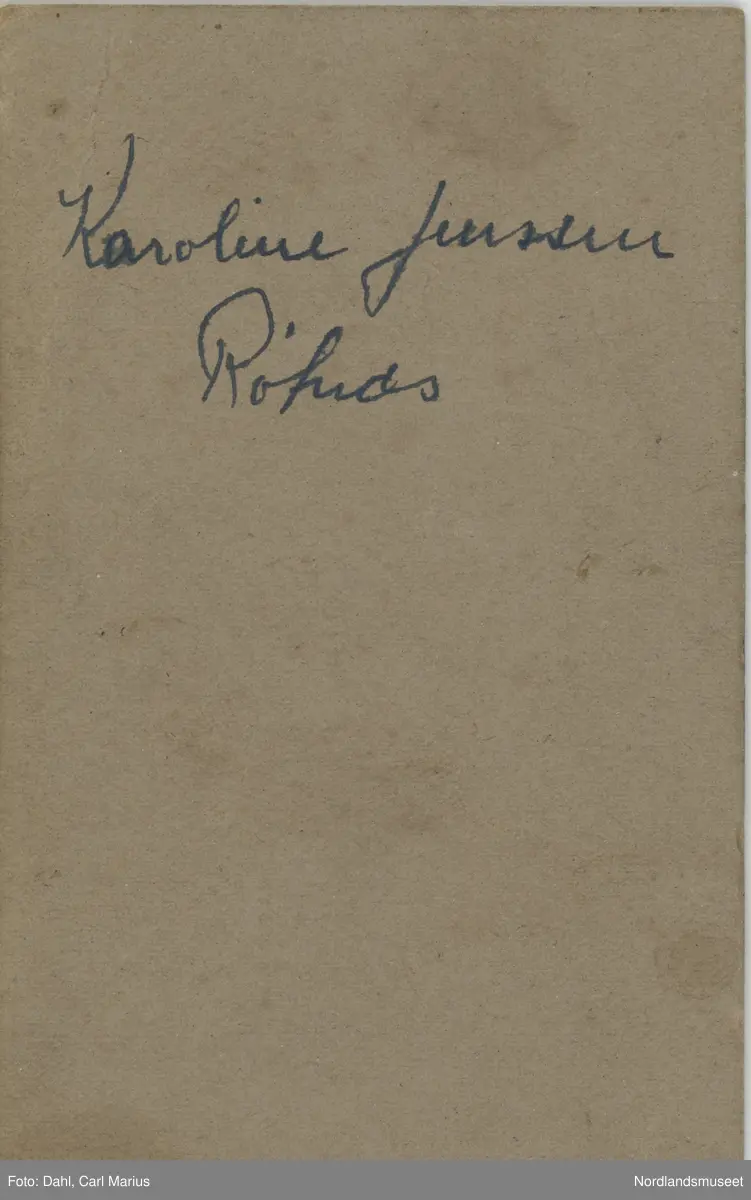 Karoline Jenssen
Röknes
Foto: Dahl, Carl Marius
Nordlandsmuseet